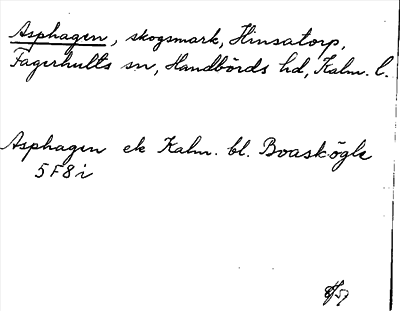 Asphagen, skogsmark, Hinsatorp,
Fagerhults sn, Handbörds hd, Kalm. l.
Asphagen ek Kalm. bl. Boaskögle
5F8i
57